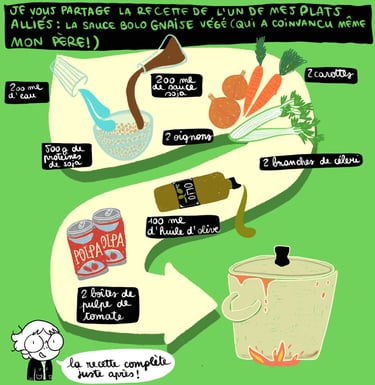 JE VOUS PARTAGE LA RECETTE DE L'UN DE MES PLATS
ALLIÉS : LA SAUCE BOLOGNAISE VÉGÉ (QUI A CONVAINCU MÊME
MON PÈRE !)
200 ml
d'eau
200 ml
de sauce
soja
2 carottes
500 g de
protéines
de soja
2 oignons
2 branches de céleri
OLIO
100 ml
d'huile d'olive
POLPA
POLPA
2 boîtes de
pulpe de
tomate
la recette complète
juste après !